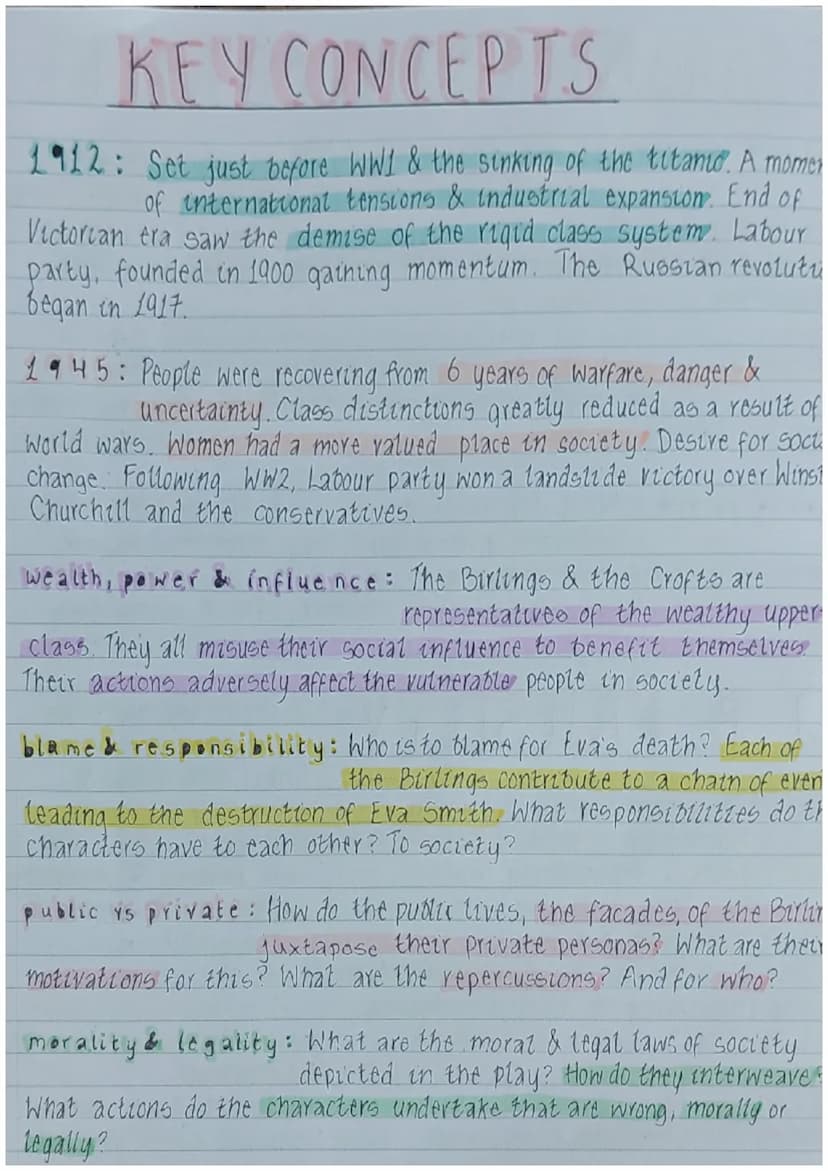 KEY CONCEPTS
1912: Set just before WW1 & the sinking of the titanic. A momen
of international tensions & industrial expansion. End of
Victorian era saw the demise of the rigid class system. Labour
party, founded in 1900 gaining momentum. The Russian revoluti
began in 1917.
1945: People were recovering from 6 years of warfare, danger &
uncertainty. Class distinctions greatly reduced as a result of
World wars. Women had a more valued place in society. Desire for soci
change. Following WW2, Labour party won a landslide victory over Winst
Churchill and the conservatives.
wealth, power & influence: The Birlings & the Crofts are
representatives of the wealthy upper-
class. They all misuse their social influence to benefit themselves.
Their actions adversely affect the vulnerable people in society.
blame & responsibility: Who is to blame for Eva's death? Each of
the Birlings contribute to a chain of even
leading to the destruction of Eva Smith. What responsibilities do th
characters have to each other? To society?
public vs private: How do the public lives, the facades, of the Birlin
juxtapose their private personas? What are their
motivations for this? What are the repercussions? And for who?
morality & legality: What are the moral & legal laws of society
depicted in the play? How do they interweave?
What actions do the characters undertake that are wrong, morally or
legally?